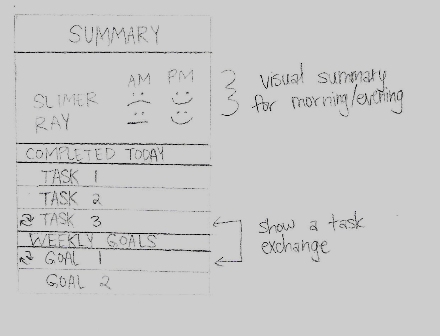 SUMMARY
AM PM
SLIMER
RAY
visual summary
for morning/evening
COMPLETED TODAY
TASK 1
TASK 2
TASK 3
show a task
exchange
WEEKLY GOALS
GOAL 1
GOAL 2